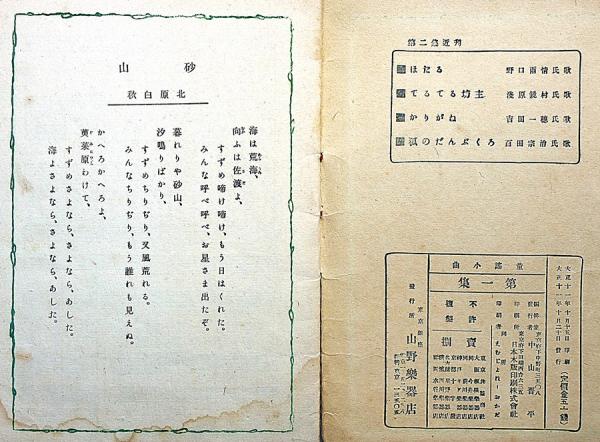 砂山
北原白秋
海は荒海、
向ふは佐渡よ、
すずめ啼け啼け、もう日はくれた。
みんな呼べ呼べ、お星さま出たぞ。
暮れりや砂山、
汐鳴りばかり、
すずめちりぢり、又風荒れる。
みんなちりぢり、もう誰れも見えぬ。
かへろかへろよ、
茱萸原わけて、
すずめさよなら、さよなら、あした。
海よさよなら、さよなら、あした。
第二集近刊
ほたる 野口雨情氏歌
てるてる坊主 浅原鏡村氏歌
かりがね 吉田一穂氏歌
狐のだんぶくろ 百田宗治氏歌
大正十一年十月十五日印刷
大正十一年十月二十日發行
(定價金五十錢)
童謠小曲
第一集
不許
複製
發行者 中山晋平
印刷所 日本木版印刷株式會社
賣捌
東京銀座
發行所 山野樂器店